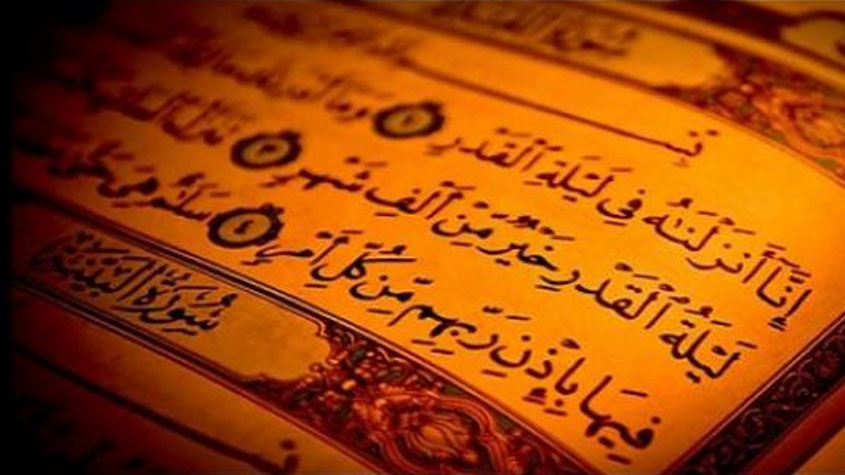 سُورَةُ القَدْرِ
بِسْـ
إِنَّآ أَنزَلْنَٰهُ فِى لَيْلَةِ ٱلْقَدْرِ ١ وَمَآ أَدْرَىٰكَ مَا
لَيْلَةُ ٱلْقَدْرِ خَيْرٌ مِّنْ أَلْفِ شَهْرٍ ٣ تَنَزَّلُ ٱلْمَلَٰٓئِكَةُ
فِيهَا بِإِذْنِ رَبِّهِم مِّن كُلِّ أَمْرٍ ٤ سَلَٰمٌ هِىَ حَتَّىٰ
سُورَةُ البَيِّنَةِ